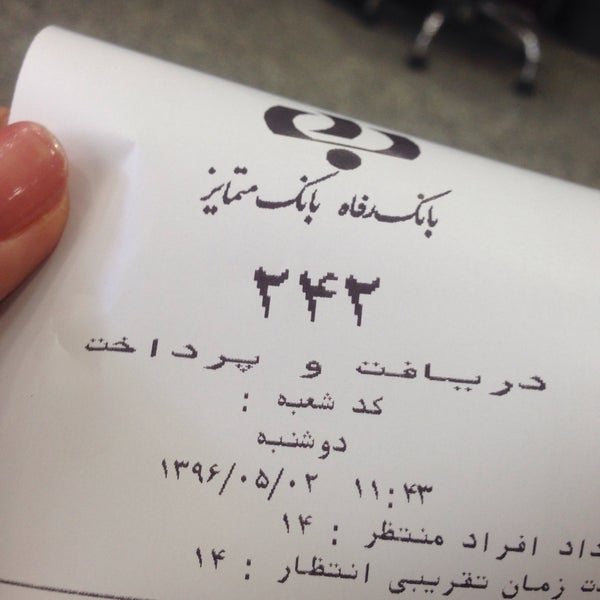 بانک رفاه بانک متمایز
۲۴۲
دریافت و پرداخت
کد شعبه :
دوشنبه
۱۳۹۶/۰۵/۰۲ ۱۱:۴۳
داد افراد منتظر : ۱۴
ت زمان تقریبی انتظار : ۱۴